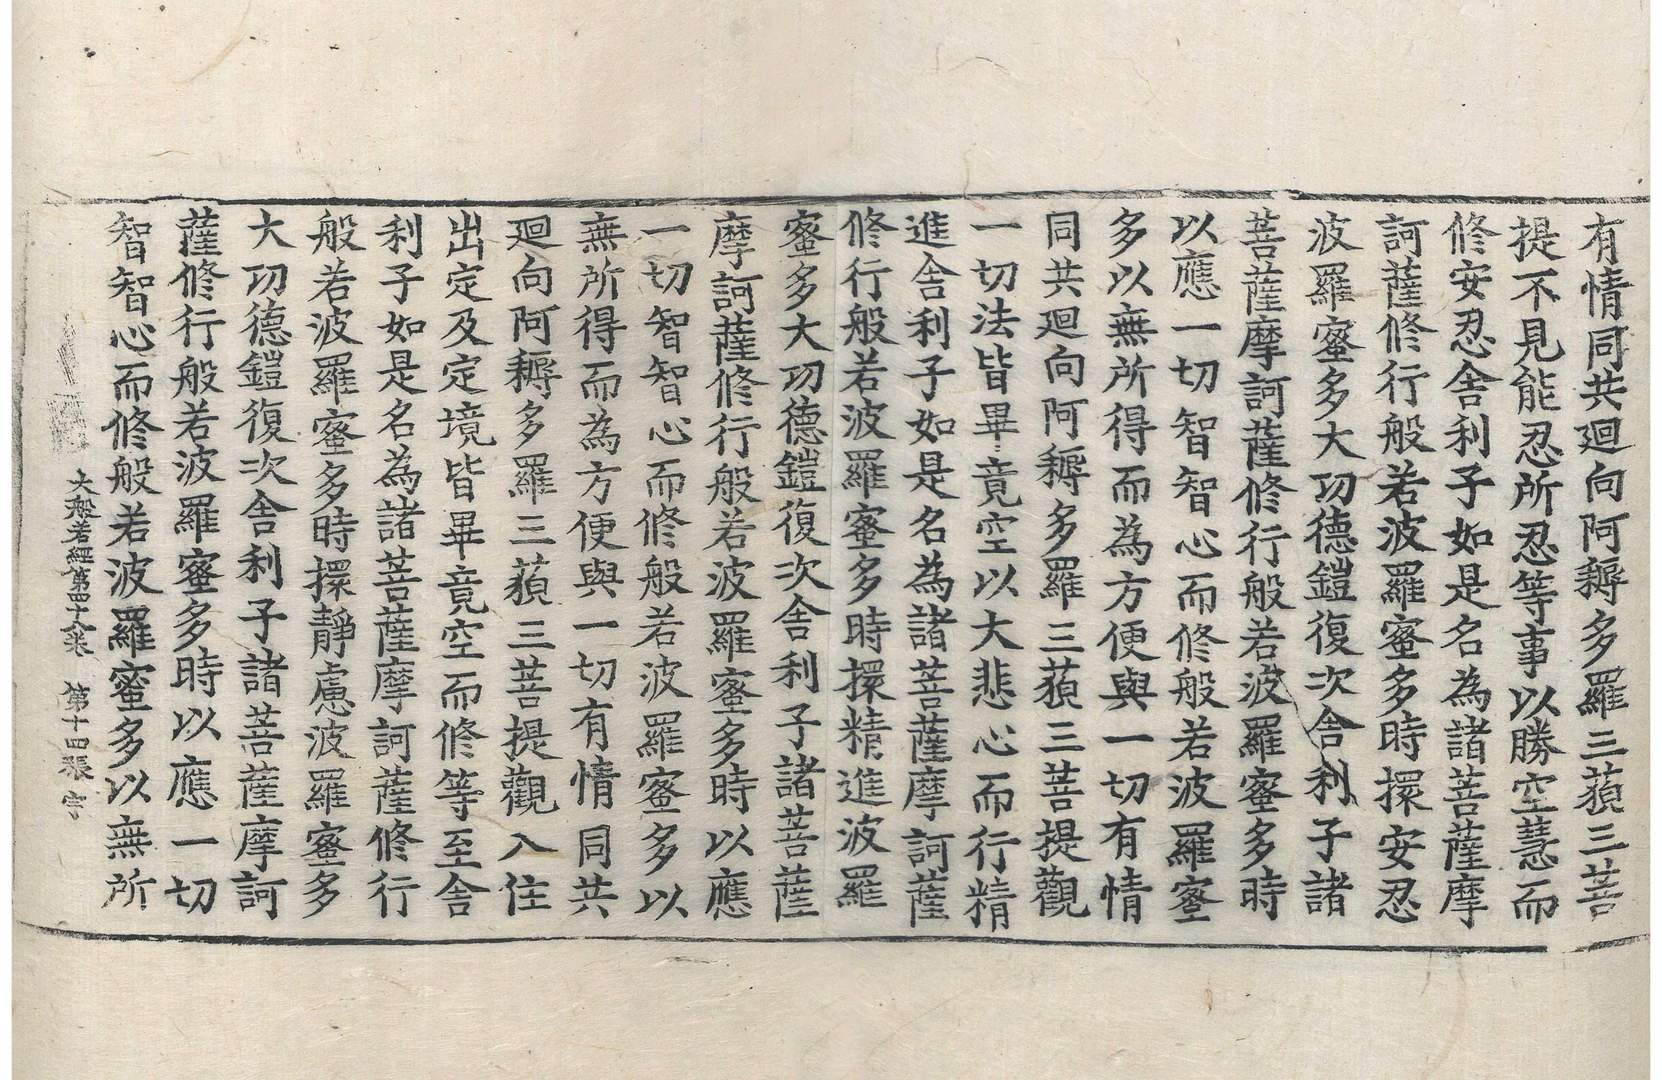 有情同共廻向阿耨多羅三藐三菩
提不見能忍所忍等事以勝空慧而
修安忍舍利子如是名為諸菩薩摩
訶薩修行般若波羅蜜多時擐安忍
波羅蜜多大功德鎧復次舍利子諸
菩薩摩訶薩修行般若波羅蜜多時
以應一切智智心而修般若波羅蜜
多以無所得而為方便與一切有情
同共廻向阿耨多羅三藐三菩提觀
一切法皆畢竟空以大悲心而行精
進舍利子如是名為諸菩薩摩訶薩
修行般若波羅蜜多時擐精進波羅
蜜多大功德鎧復次舍利子諸菩薩
摩訶薩修行般若波羅蜜多時以應
一切智智心而修般若波羅蜜多以
無所得而為方便與一切有情同共
廻向阿耨多羅三藐三菩提觀入住
出定及定境皆畢竟空而修等至舍
利子如是名為諸菩薩摩訶薩修行
般若波羅蜜多時擐靜慮波羅蜜多
大功德鎧復次舍利子諸菩薩摩訶
薩修行般若波羅蜜多時以應一切
智智心而修般若波羅蜜多以無所
大般若經第四十八卷 第十四張